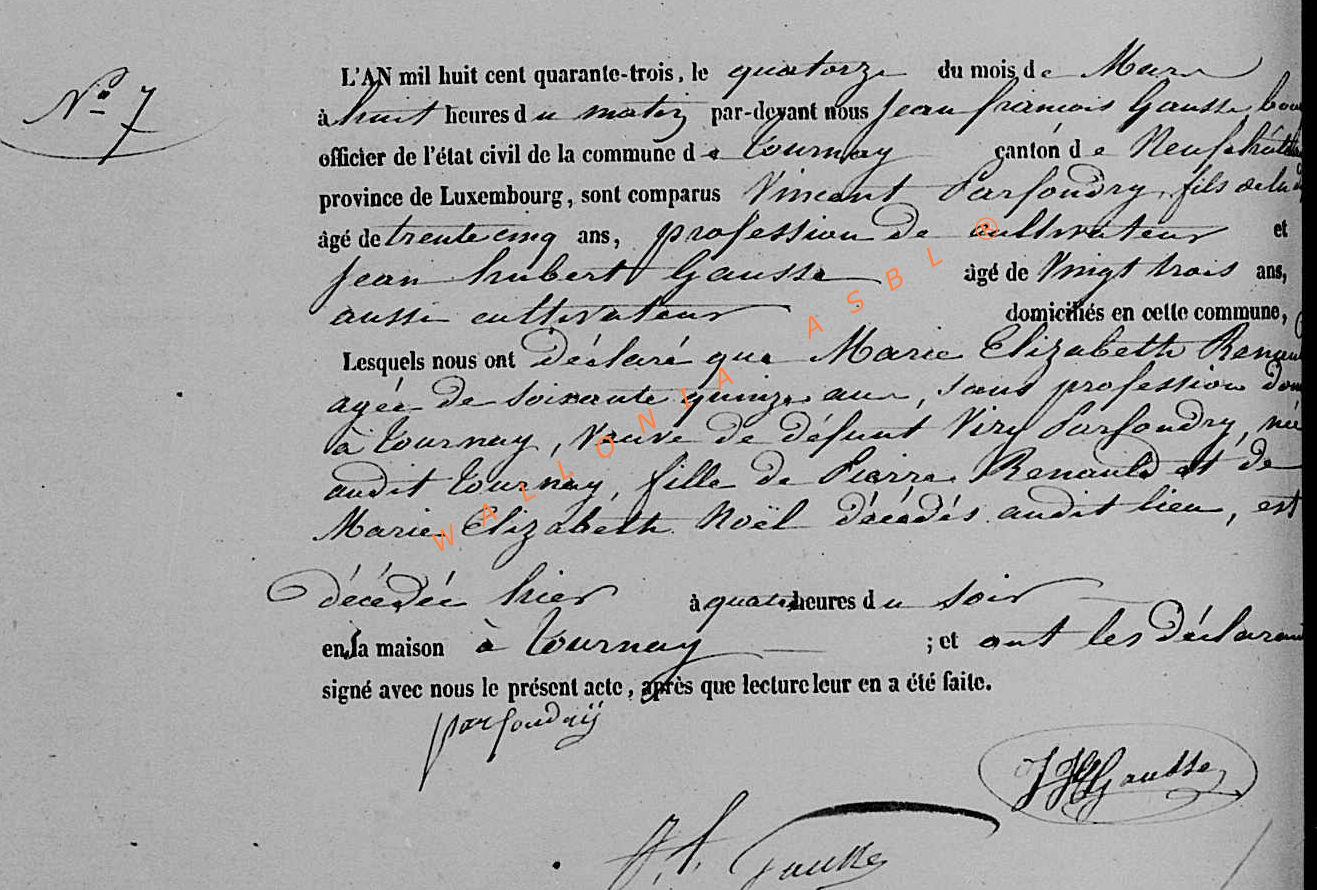 N° 7
L'AN mil huit cent quarante-trois, le quatorze du mois de Mars
à huit heures du matin par-devant nous Jean françois Gausse, bou
officier de l'état civil de la commune de Tournay canton de Neufchâte
province de Luxembourg, sont comparus Vincent Parfondry, fils de la d
âgé de trente cinq ans, profession de cultivateur et
Jean hubert Gausse âgé de Vingt trois ans,
aussi cultivateur domiciliés en cette commune,
Lesquels nous ont déclaré que Marie Elizabeth Renau
agée de soixante quinze ans, sans profession dom
à Tournay, Veuve de défunt Viry Parfondry, née
audit Tournay, fille de Pierre Renauld et de
Marie Elizabeth Noël décédés audit lieu, est
décédée hier à quatre heures du soir
en sa maison à Tournay ; et ont les déclarant
signé avec nous le présent acte, après que lecture leur en a été faite.
parfondrÿ
JH Gausse
J. f. Gausse
WALLONIA ASBL ®